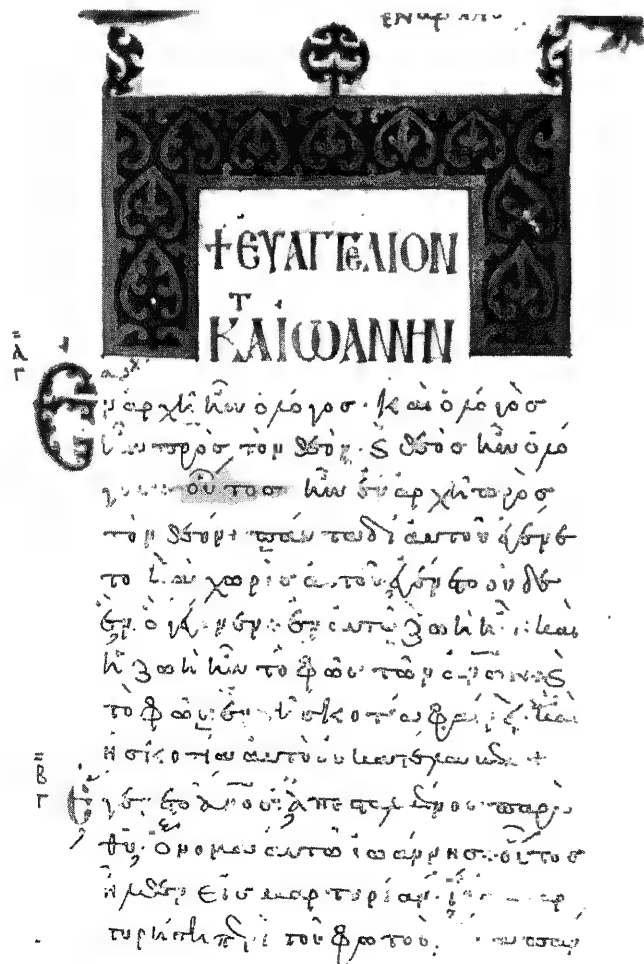 + ΕΥΑΓΓΕΛΙΟΝ
ΚΑΤ ΙΩΑΝΝΗΝ
Ἐν ἀρχῆ ἦν ὁ λόγοσ · καὶ ὁ λόγοσ
ἦν πρὸσ τὸν θεὸν · ϗ θεὸσ ἦν ὁ λό
γοσ οὗτοσ ἦν ἐν ἀρχῆ πρὸσ
τὸν θεόν + πάντα δι αὐτοῦ ἐγένε
το ϗ χωρὶσ αὐτοῦ ἐγένετο οὐδὲ
ἕν · ὃ γέγονεν · ἐν αὐτῶ ζωὴ ἦν · καὶ
ἡ ζωὴ ἦν τὸ φῶσ τῶν ϗ
τὸ φῶσ ἐν τῆ σκοτία φαίνει · καὶ
ἡ σκοτία αὐτὸ οὐ κατέλαβεν +
Β
Γ
Ἐγένετο ἀν̅ο̅σ̅ ἀπεσταλμένοσ παρὰ
θυ̅ · ὄνομα αὐτῶ ἰωάννησ · οὗτοσ
ἦλθεν εἰσ μαρτυρίαν · ἵνα μαρ
τυρήση περὶ τοῦ φωτὸσ ·